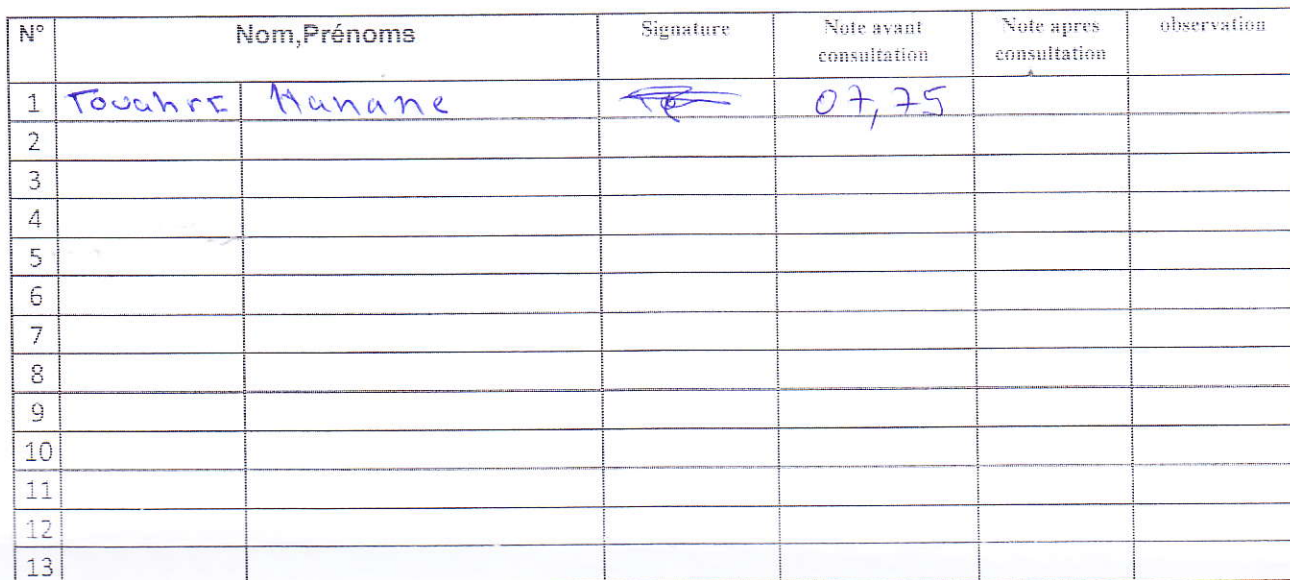 N° Nom,Prénoms Signature Note avant consultation Note apres consultation observation
1 Touahri Hanane 07,75
2
3
4
5
6
7
8
9
10
11
12
13